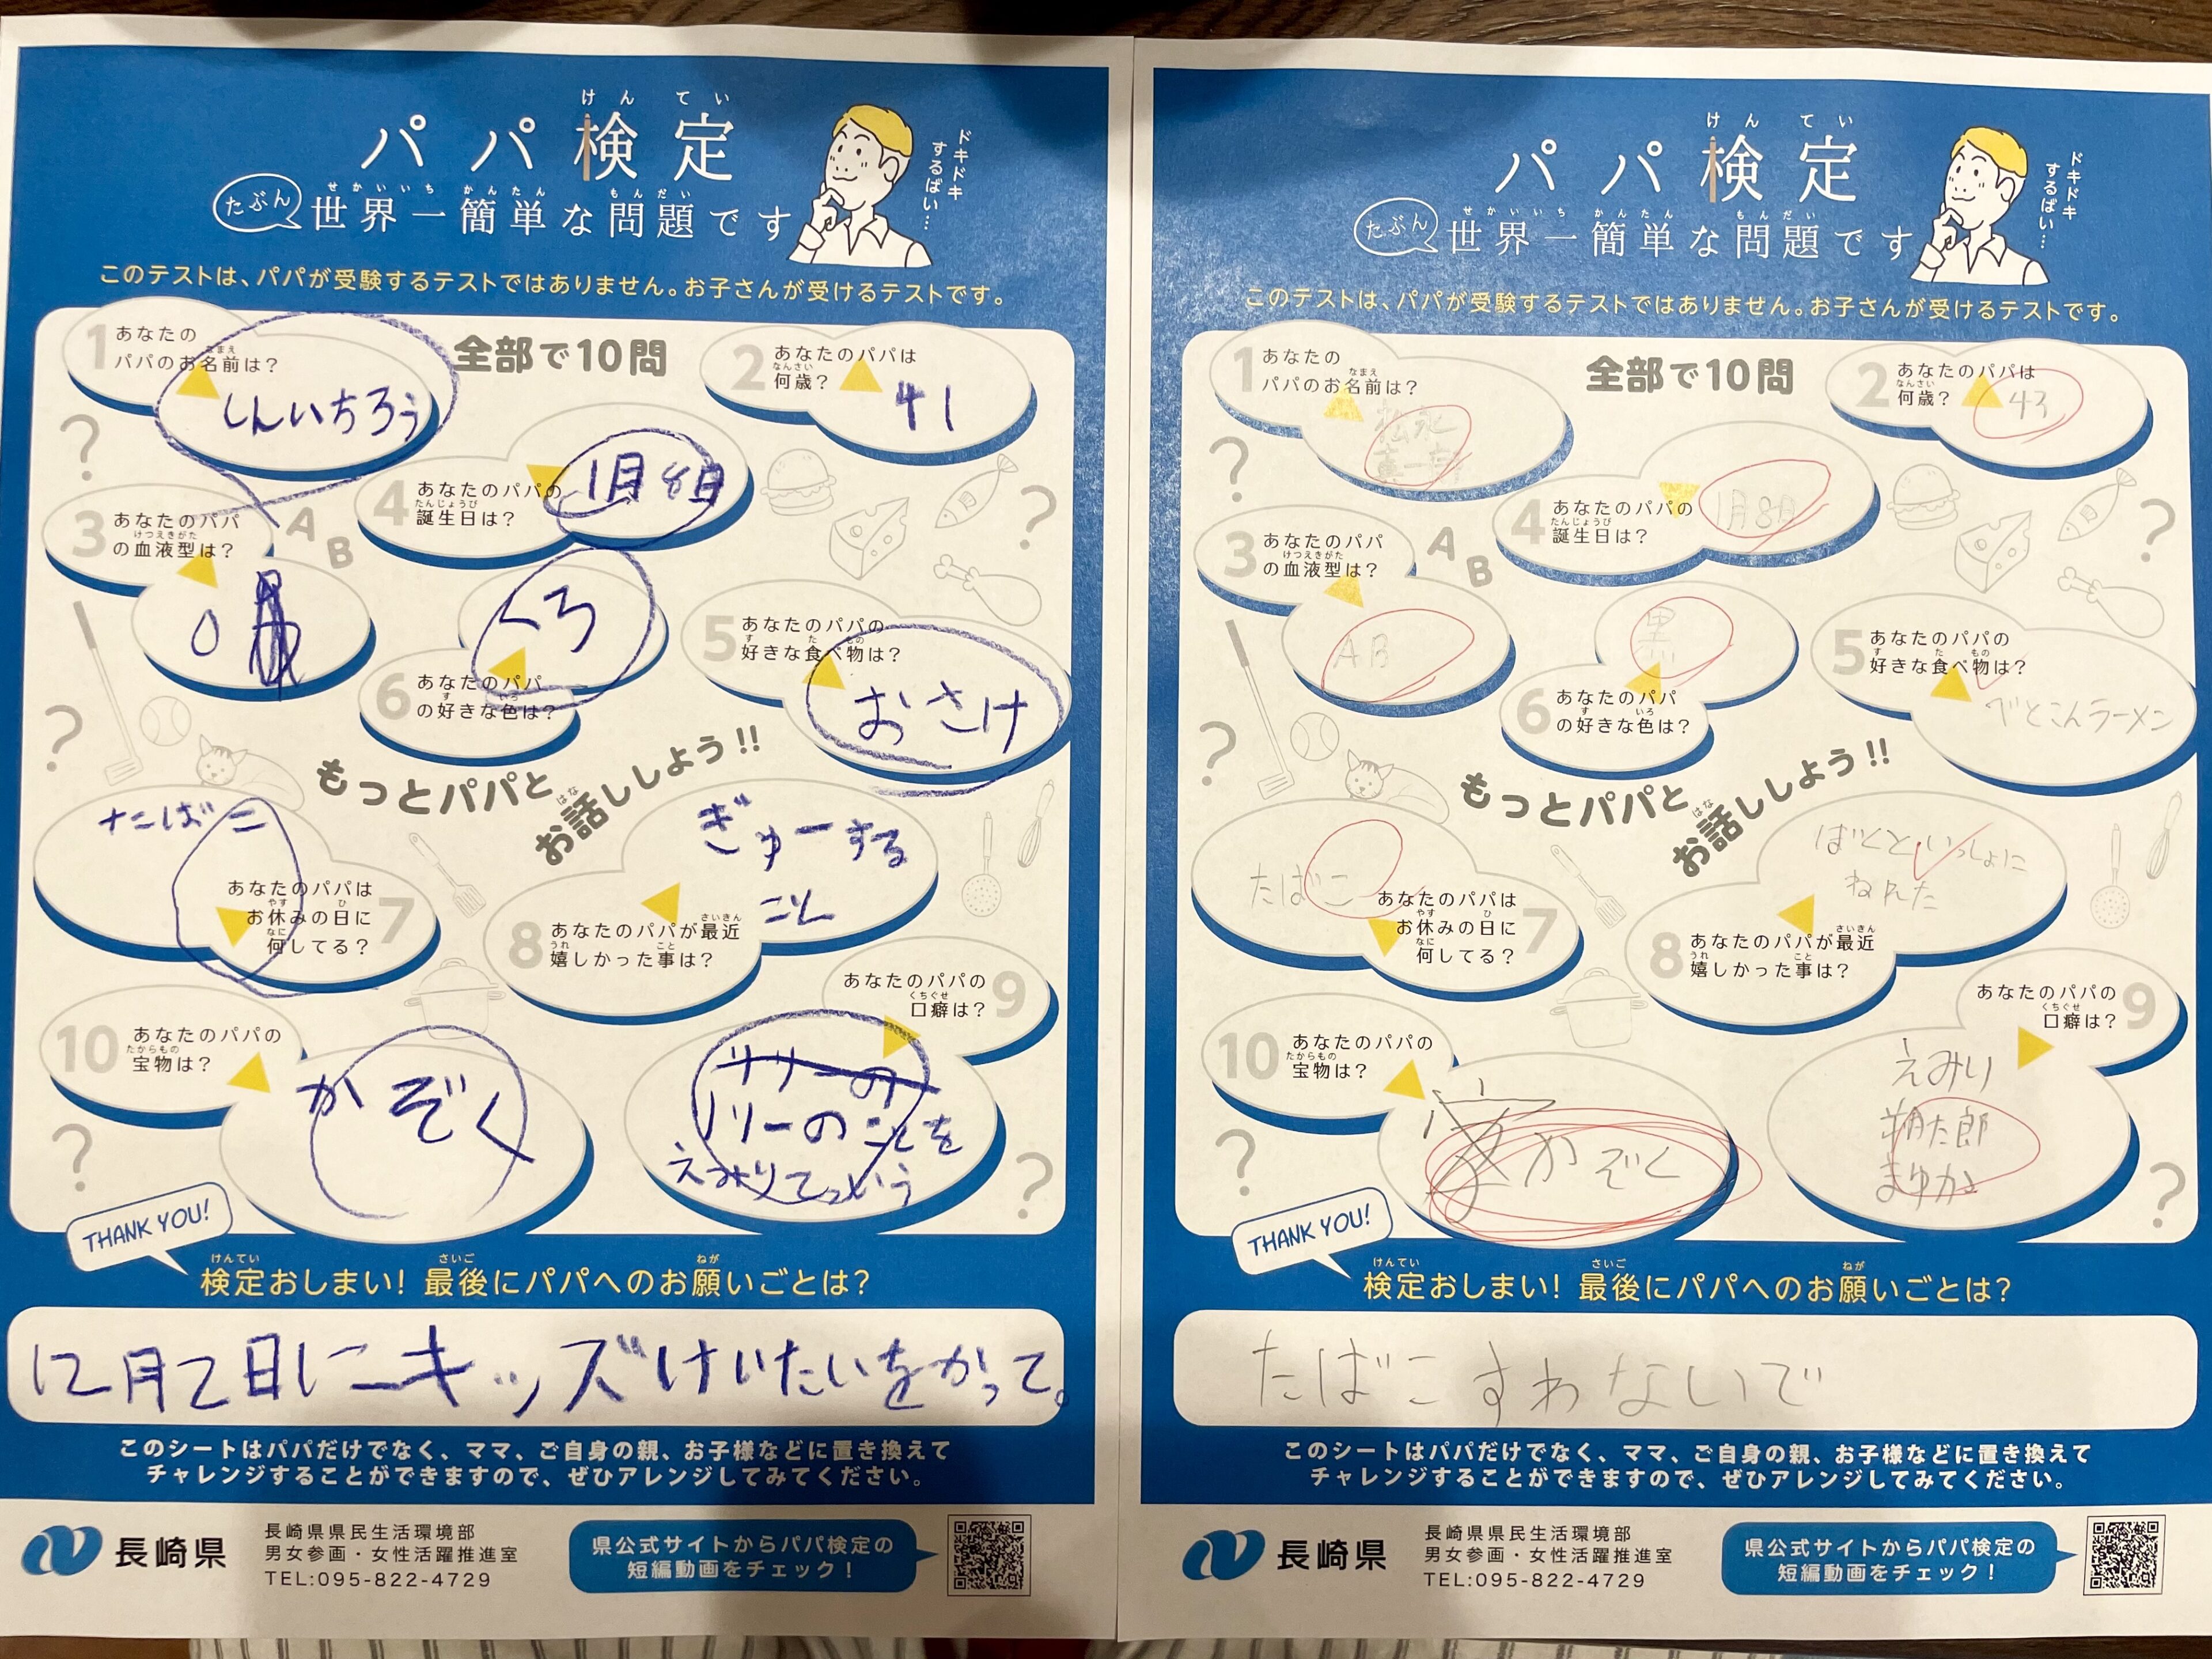 パパ検定
けんてい
たぶん
世界一簡単な問題です
せかいいち かんたん もんだい
ドキドキ
するばい…
このテストは、パパが受験するテストではありません。お子さんが受けるテストです。
全部で10問
1 あなたの
パパのお名前は?
なまえ
しんいちろう
2 あなたのパパは
何歳?
なんさい
41
3 あなたのパパ
の血液型は?
けつえきがた
O
A
B
4 あなたのパパの
誕生日は?
たんじょうび
1月8日
5 あなたのパパの
好きな食べ物は?
す た もの
おさけ
6 あなたのパパ
の好きな色は?
す いろ
くろ
もっとパパと
お話ししよう!!
はな
たばこ
あなたのパパは
お休みの日に
何してる?
やす ひ
なに
7
ぎゅーする
こと
8 あなたのパパが最近
嬉しかった事は?
さいきん
うれ こと
あなたのパパの
口癖は?
くちぐせ
9
リリーのことを
えみりてっいう
10 あなたのパパの
宝物は?
たからもの
かぞく
THANK YOU!
検定おしまい! 最後にパパへのお願いごとは?
けんてい さいご ねが
12月2日にキッズけいたいをかって。
このシートはパパだけでなく、ママ、ご自身の親、お子様などに置き換えて
チャレンジすることができますので、ぜひアレンジしてみてください。
長崎県
長崎県県民生活環境部
男女参画・女性活躍推進室
TEL:095-822-4729
県公式サイトからパパ検定の
短編動画をチェック!
パパ検定
けんてい
たぶん
世界一簡単な問題です
せかいいち かんたん もんだい
ドキドキ
するばい…
このテストは、パパが受験するテストではありません。お子さんが受けるテストです。
全部で10問
1 あなたの
パパのお名前は?
なまえ
2 あなたのパパは
何歳?
なんさい
43
3 あなたのパパ
の血液型は?
けつえきがた
AB
A
B
4 あなたのパパの
誕生日は?
たんじょうび
1月8日
5 あなたのパパの
好きな食べ物は?
す た もの
べとこんラーメン
6 あなたのパパ
の好きな色は?
す いろ
黒
もっとパパと
お話ししよう!!
はな
たばこ
あなたのパパは
お休みの日に
何してる?
やす ひ
なに
7
ぼくといっしょに
ねれた
8 あなたのパパが最近
嬉しかった事は?
さいきん
うれ こと
あなたのパパの
口癖は?
くちぐせ
9
えみり
朔太郎
まゆか
10 あなたのパパの
宝物は?
たからもの
かぞく
THANK YOU!
検定おしまい! 最後にパパへのお願いごとは?
けんてい さいご ねが
たばこすわないで
このシートはパパだけでなく、ママ、ご自身の親、お子様などに置き換えて
チャレンジすることができますので、ぜひアレンジしてみてください。
長崎県
長崎県県民生活環境部
男女参画・女性活躍推進室
TEL:095-822-4729
県公式サイトからパパ検定の
短編動画をチェック!